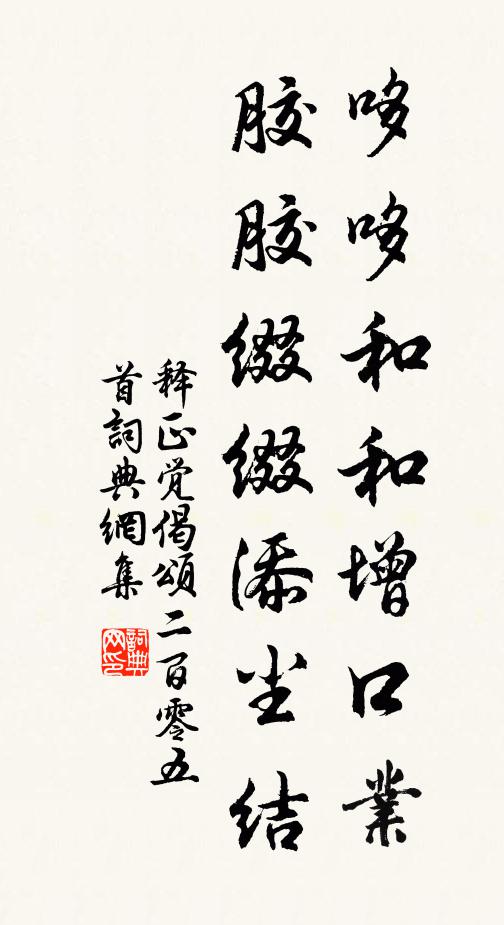 哆哆和和增口業
胶胶綴綴添尘结
释正觉偈頌二百零五
首詞典網集
詞典网印